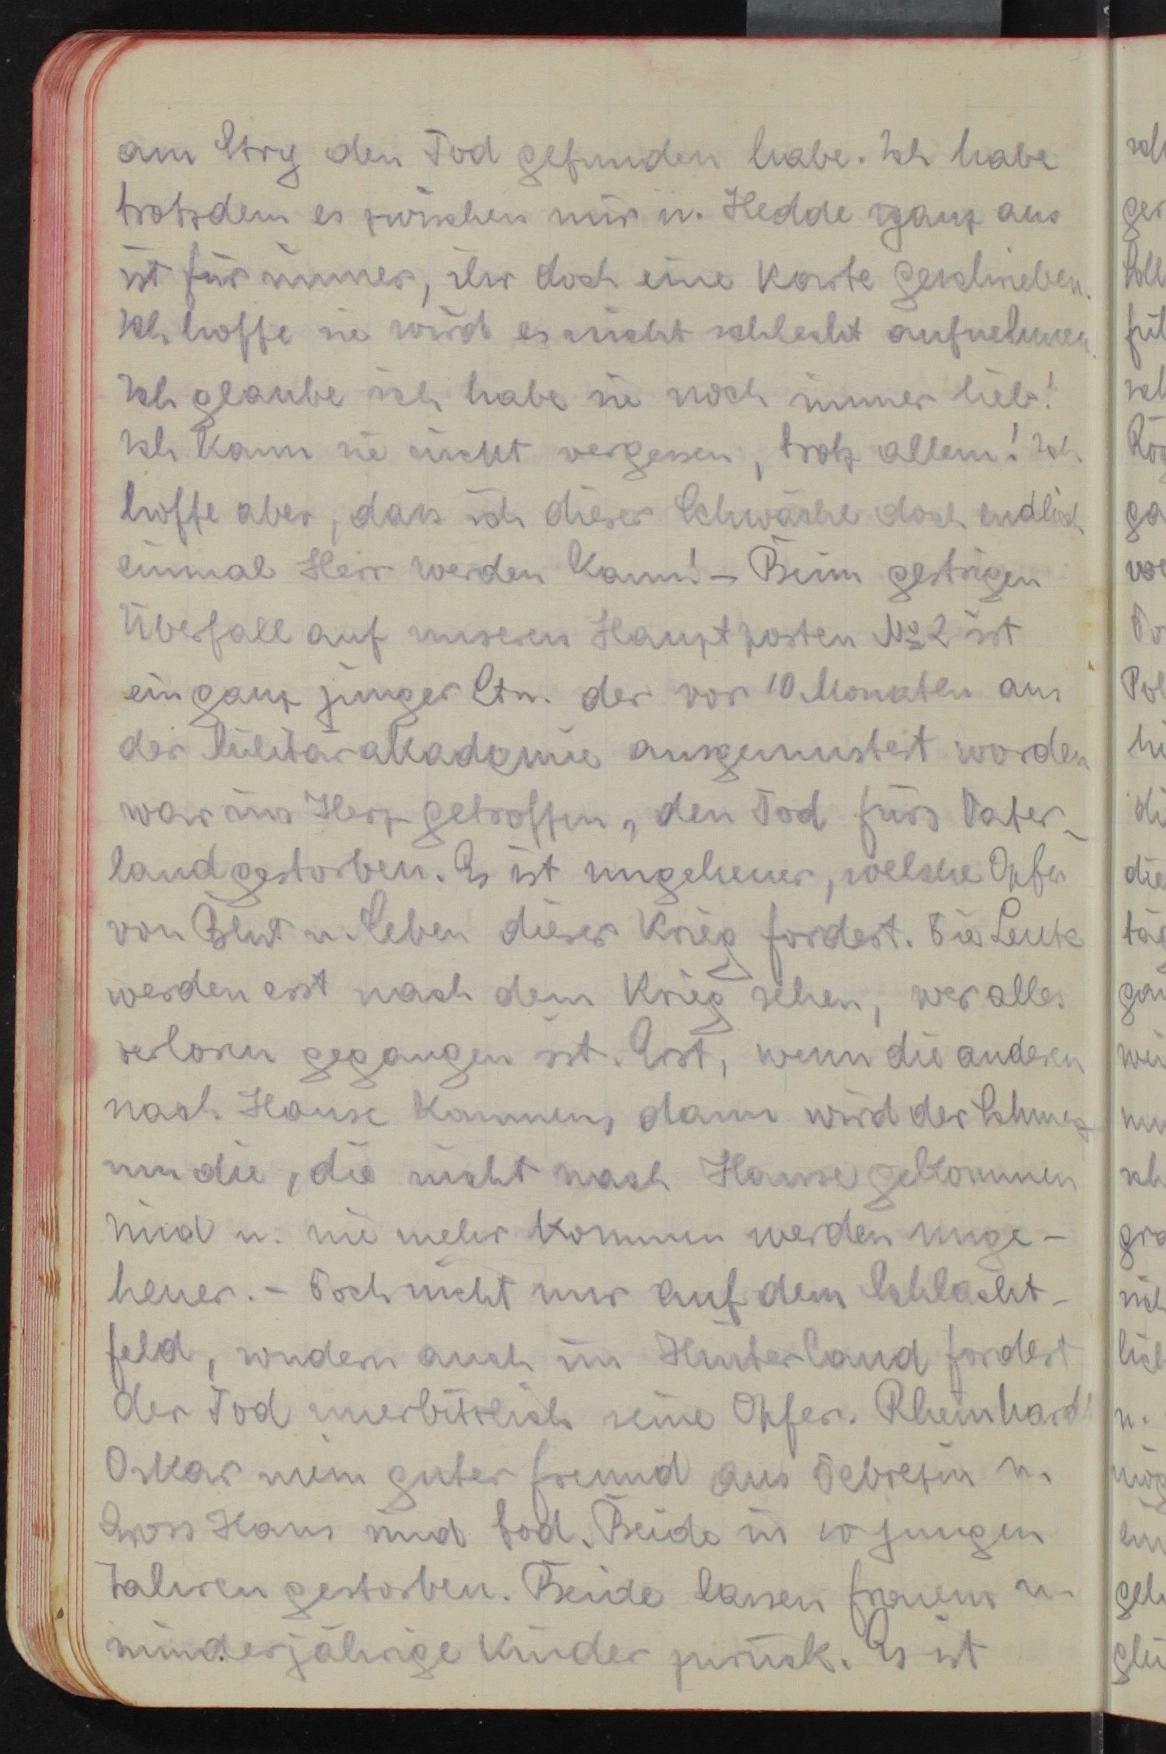 am Stry den Tod gefunden habe. Ich habe
trotzdem es zwischen mir u. Hedde ganz aus
ist für immer, ihr doch eine Karte geschrieben.
Ich hoffe sie wird es nicht schlecht aufnehmen.
Ich glaube ich habe sie noch immer lieb!
Ich kann sie nicht vergessen, trotz allem! Ich
hoffe aber, dass ich dieser Schwäche doch endlich
einmal Herr werden kann! – Beim gestrigen
Überfall auf unseren Hauptposten No 2 ist
ein ganz junger Ltn. der vor 10 Monaten aus
der Militärakademie ausgemustert worden
war ins Herz getroffen, den Tod fürs Vater-
land gestorben. Es ist ungeheuer, welche Opfer
von Blut u. Leben dieser Krieg fordert. Die Leute
werden erst nach dem Krieg sehen, wer alles
verloren gegangen ist. Erst, wenn die anderen
nach Hause kommen, dann wird der Schmerz
um die, die nicht nach Hause gekommen
sind u. nie mehr kommen werden unge-
heuer. – Doch nicht nur auf dem Schlacht-
feld, sondern auch im Hinterland fordert
der Tod unerbittlich seine Opfer. Rheinhard
Oskar mein guter Freund aus Debrezin u.
Gross Hans sind tod. Beide in so jungen
Jahren gestorben. Beide lassen Frauen u.
minderjährige Kinder zurück. Es ist